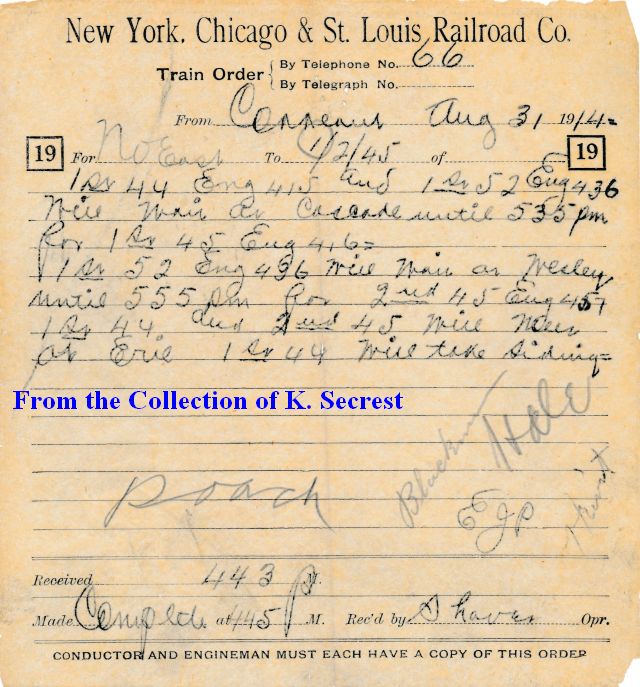 New York, Chicago & St. Louis Railroad Co.
Train Order { By Telephone No. 66
By Telegraph No.
From Conneaut Aug 31 1914=
19 For No East To 1/2/45 of 19
1st 44 Eng 415 and 1st 52 Eng 436
Will Wait at Cascade until 535 pm
for 1st 45 Eng 416=
1st 52 Eng 436 Will Wait at Wesley
until 555 pm for 2nd 45 Eng 457
1st 44 and 2nd 45 Will Meet
at Erie 1st 44 Will take Siding=
From the Collection of K. Secrest
Hale
Roach
EJP
Received 443 P M.
Made Complete at 445 P M. Rec'd by Shaver Opr.
CONDUCTOR AND ENGINEMAN MUST EACH HAVE A COPY OF THIS ORDER